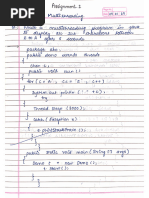 Assignment 1
Multithreading
Write a multithreading program in java
to display all the alphabets between
A to Z after 2 seconds
package
public class extends Thread
{
char c;
public void run ()
{
for (c = 'A'; c <= 'Z'; c++)
{
System.out.println (" " + c);
try
{
Thread.sleep (2000);
}
catch (Exception e)
{
e.printStackTrace ();
}
}
}
public static void main (String [] args)
{
= new ();
t.start ();
}
}